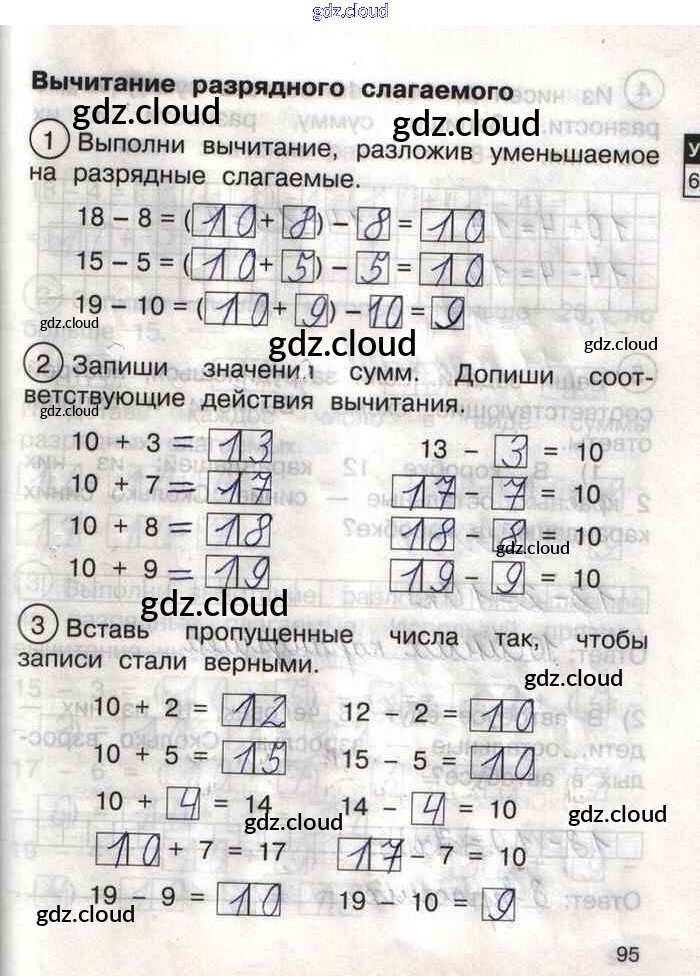 gdz.cloud
Вычитание разрядного слагаемого
gdz.cloud gdz.cloud
1 Выполни вычитание, разложив уменьшаемое
на разрядные слагаемые.
У
6
18 – 8 = (10 + 8) – 8 = 10
15 – 5 = (10 + 5) – 5 = 10
19 – 10 = (10 + 9) – 10 = 9
gdz.cloud gdz.cloud gdz.cloud
2 Запиши значения сумм. Допиши соот-
ветствующие действия вычитания.
10 + 3 = 13 13 – 3 = 10
10 + 7 = 17 17 – 7 = 10
10 + 8 = 18 18 – 8 = 10
gdz.cloud
10 + 9 = 19 19 – 9 = 10
gdz.cloud
3 Вставь пропущенные числа так, чтобы
записи стали верными.
gdz.cloud
10 + 2 = 12 12 – 2 = 10
10 + 5 = 15 15 – 5 = 10
10 + 4 = 14 14 – 4 = 10
gdz.cloud gdz.cloud
10 + 7 = 17 17 – 7 = 10
19 – 9 = 10 19 – 10 = 9
gdz.cloud gdz.cloud
95